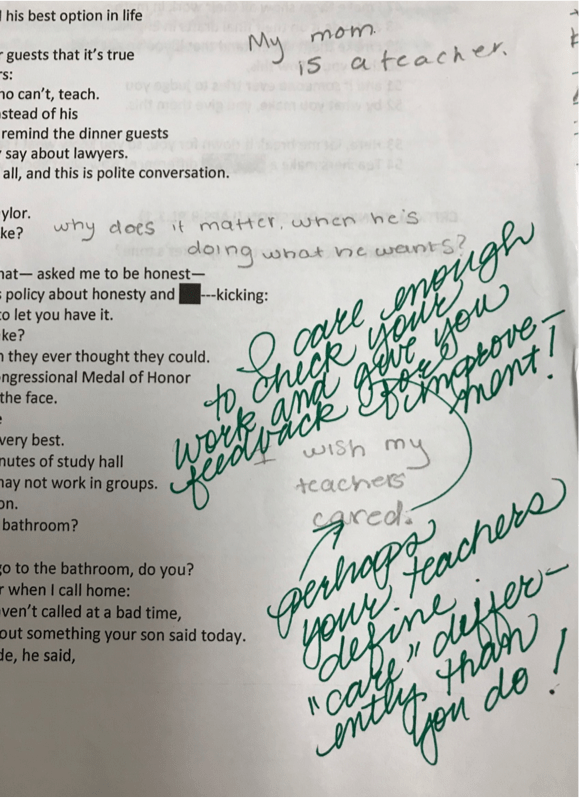 l his best option in life
My mom
is a teacher.
r guests that it's true
rs:
ho can't, teach.
stead of his
remind the dinner guests
say about lawyers.
all, and this is polite conversation.
ylor.
ke?
why does it matter, when he's
doing what he wants?
hat— asked me to be honest—
s policy about honesty and ---kicking:
to let you have it.
ke?
n they ever thought they could.
ongressional Medal of Honor
the face.
very best.
nutes of study hall
may not work in groups.
on.
bathroom?
go to the bathroom, do you?
r when I call home:
ven't called at a bad time,
out something your son said today.
de, he said,
I care enough
to check your
work and give you
feedback for improve-
ment!
I wish my
teachers
cared.
perhaps
your teachers
define
"care" differ-
ently than
you do!